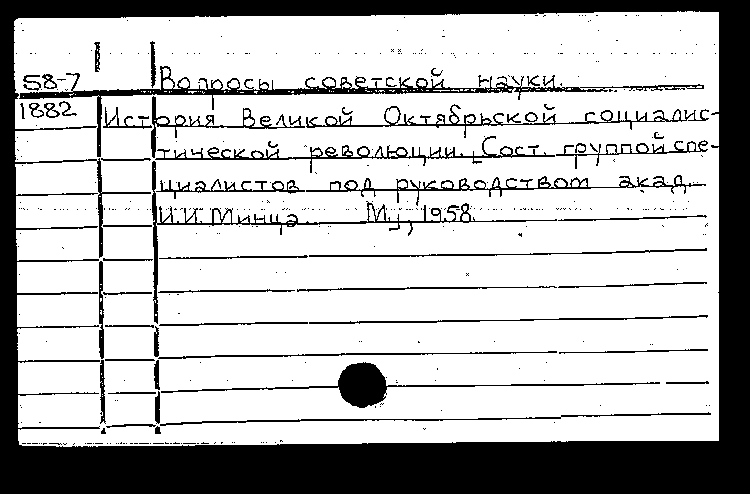 58-7 Вопросы советской науки.
1882 История Великой Октябрьской социалис-
тической революции. Сост. группой спе-
циалистов под руководством акад.
И.И. Минца. М., 1958.